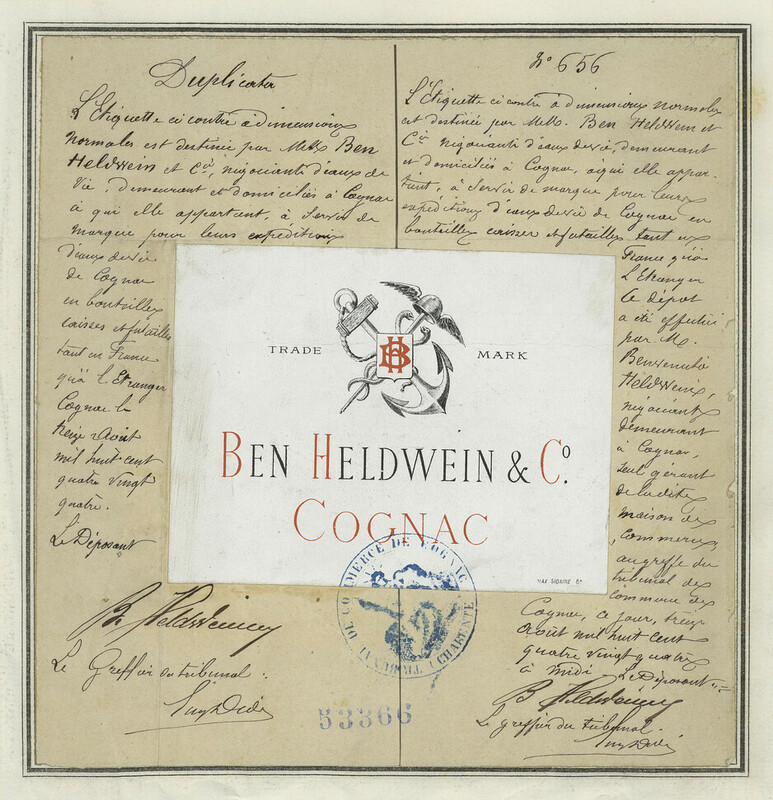 Duplicata
L'Etiquette ci contre à dimensions
normales est destinée par MM. Ben
Heldwein et Cie, négociants d'eaux de
Vie, demeurant et domiciliés à Cognac
à qui elle appartient, à Servir de
marque pour leurs expéditions
d'eaux de vie
de Cognac
en bouteilles
caisses et futailles
tant en France
qu'à l'Etranger
Cognac le
treize Août
mil huit cent
quatre vingt
quatre.
Le Déposant
B. Heldwein
Le Greffier du tribunal.
No 656
L'Etiquette ci contre à dimensions normales
est destinée par MM. Ben Heldwein et
Cie négociants d'eaux de vie, demeurant
et domiciliés à Cognac, à qui elle appar-
tient, à Servir de marque pour leurs
expéditions d'eaux de vie de Cognac en
bouteilles caisses et futailles tant en
France qu'à
L'Etranger
Le dépôt
a été effectué
par M.
Benvenuto
Heldwein,
négociant
demeurant
à Cognac,
seul gérant
de la dite
maison de
commerce,
au greffe du
tribunal de
commerce de
Cognac, ce jour, treize
Août mil huit cent
quatre vingt quatre
à midi Le Déposant
B. Heldwein
Le greffier du tribunal.
TRADE MARK
HB
BEN HELDWEIN & Co.
COGNAC
TRIBUNAL DE COMMERCE DE COGNAC
(CHARENTE)
53366